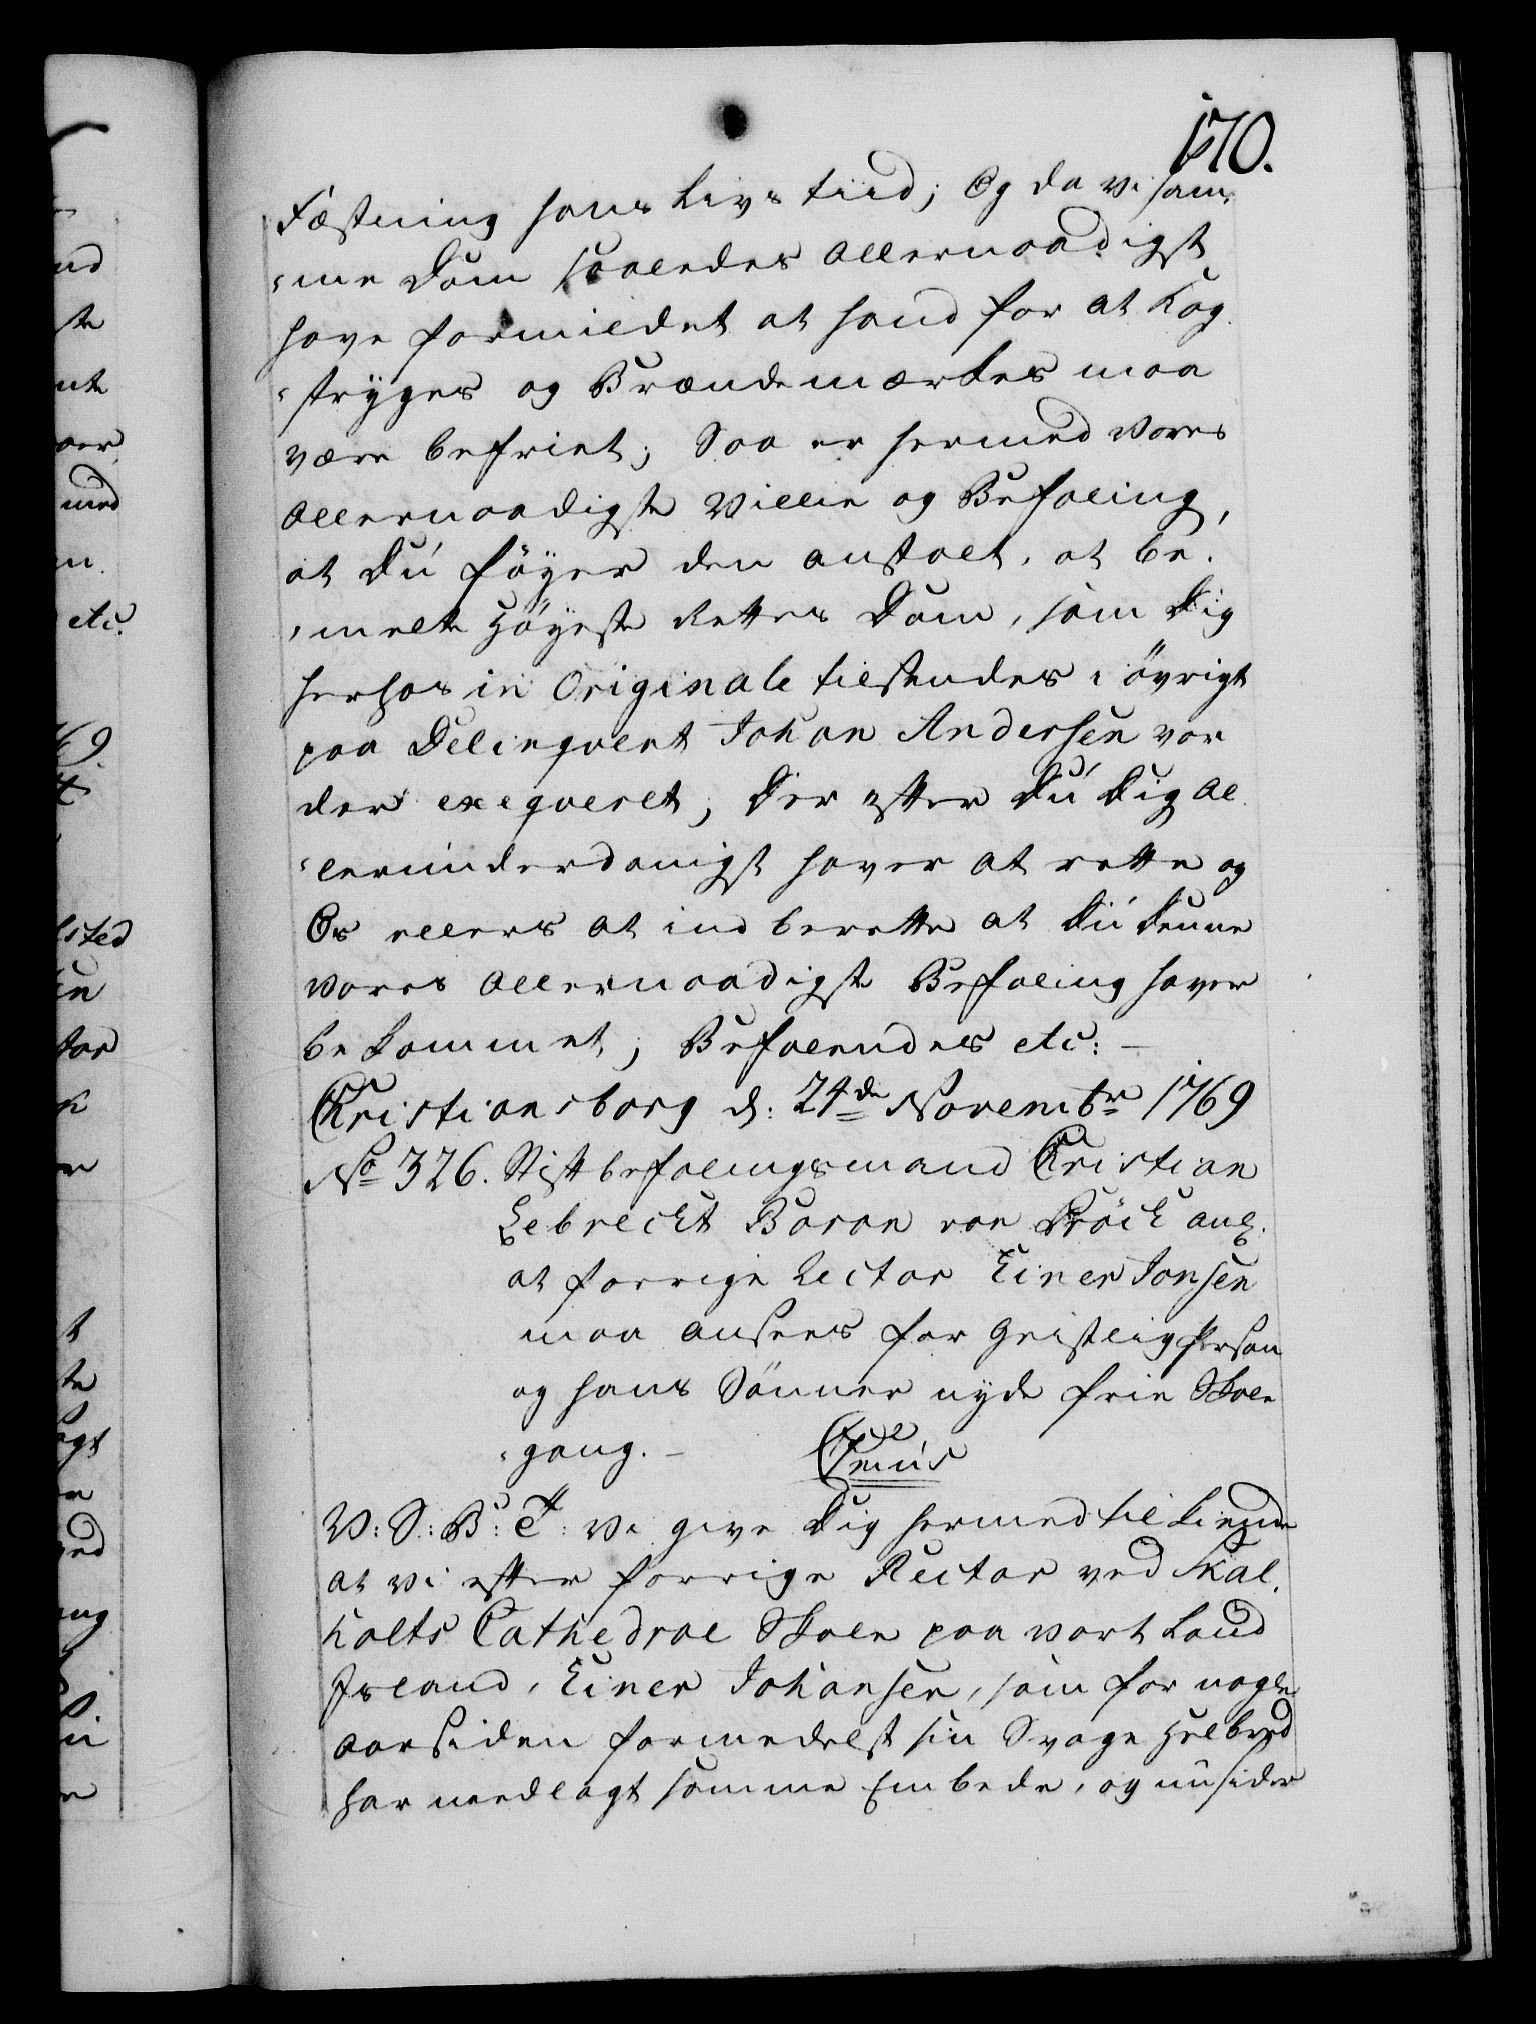 170.
Fæstning hans Livs tiid; Og da vi sam,
,,me Dom saaledes allernaadigst
have formildet at hand for at Kag
,,stryges og Brændemærkes maa
være befriet; Saa er hermed vores
allernaadigste Villie og Befaling,
at Du føyer den anstalt, at be.
,,melte Høyeste Rettes Dom, som Dig
herhos in Originale tilsendes i øvrigt
paa Delinqvent Johan Andersen vor
der exeqveret; Der efter Du Dig al
,,lerunderdanigst haver at rette og
Os ellers at ind berette at Du denne
vores allernaadigste Befaling haver
bekommet; Befalendes etc: —
Christiansborg d: 24de Novembr 1769
No 326. Stiftbefalingsmand Christian
Lebrecht Baron von Pröck ang.
at forrige Lector Einer Jonsen
maa ansees for Geistlig Person
og hans Sønner nyde frie Skole
,,gang. —
V: S: B: T: Vi give Dig hermed til kiende
at vi efter forrige Rector ved Skal.
holts Cathedral Skole paa vort Land
Island, Einer Johansen, som for nogle
aar siden formedelst sin Svage Helbred
har needlagt samme Embede, og nu sider
nd
ste
med
etc.
69
sted